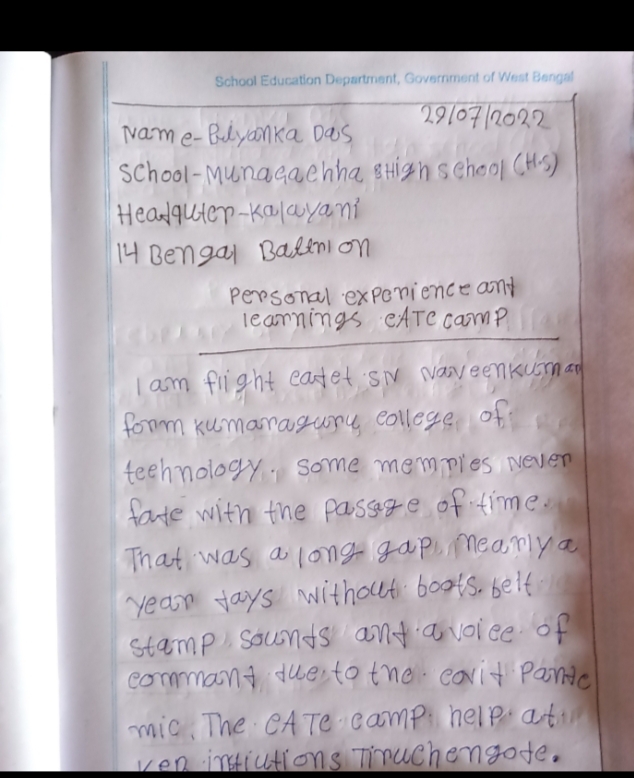 School Education Department, Government of West Bengal
29/07/2022
Name- Das
School-Munagachha High school (H.S)
Headquter-Kalayani
14 Bengal
Personal experience and
learnings CATC camp
I am flight cadet SN Naveenkumar
form kumaraguru college of
technology. some memories Never
fade with the passage of time.
That was a long gap, nearly a
year days without boots. belt
stamp sounds and a voice of
command, due to the covid Pande
mic. The CATC camp help at
Tiruchengode.